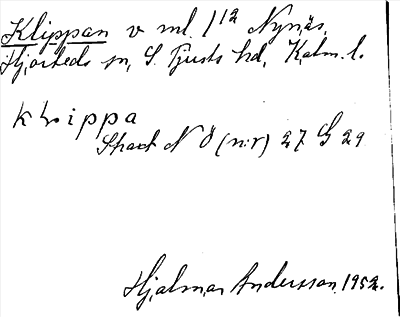 Klippan v ml. 1¹² Nynäs,
Hjorteds sn, S. Tjusts hd, Kalm. l.
klippa
N Ö (n:r) 27 G 29
Hjalmar Andersson 1952.